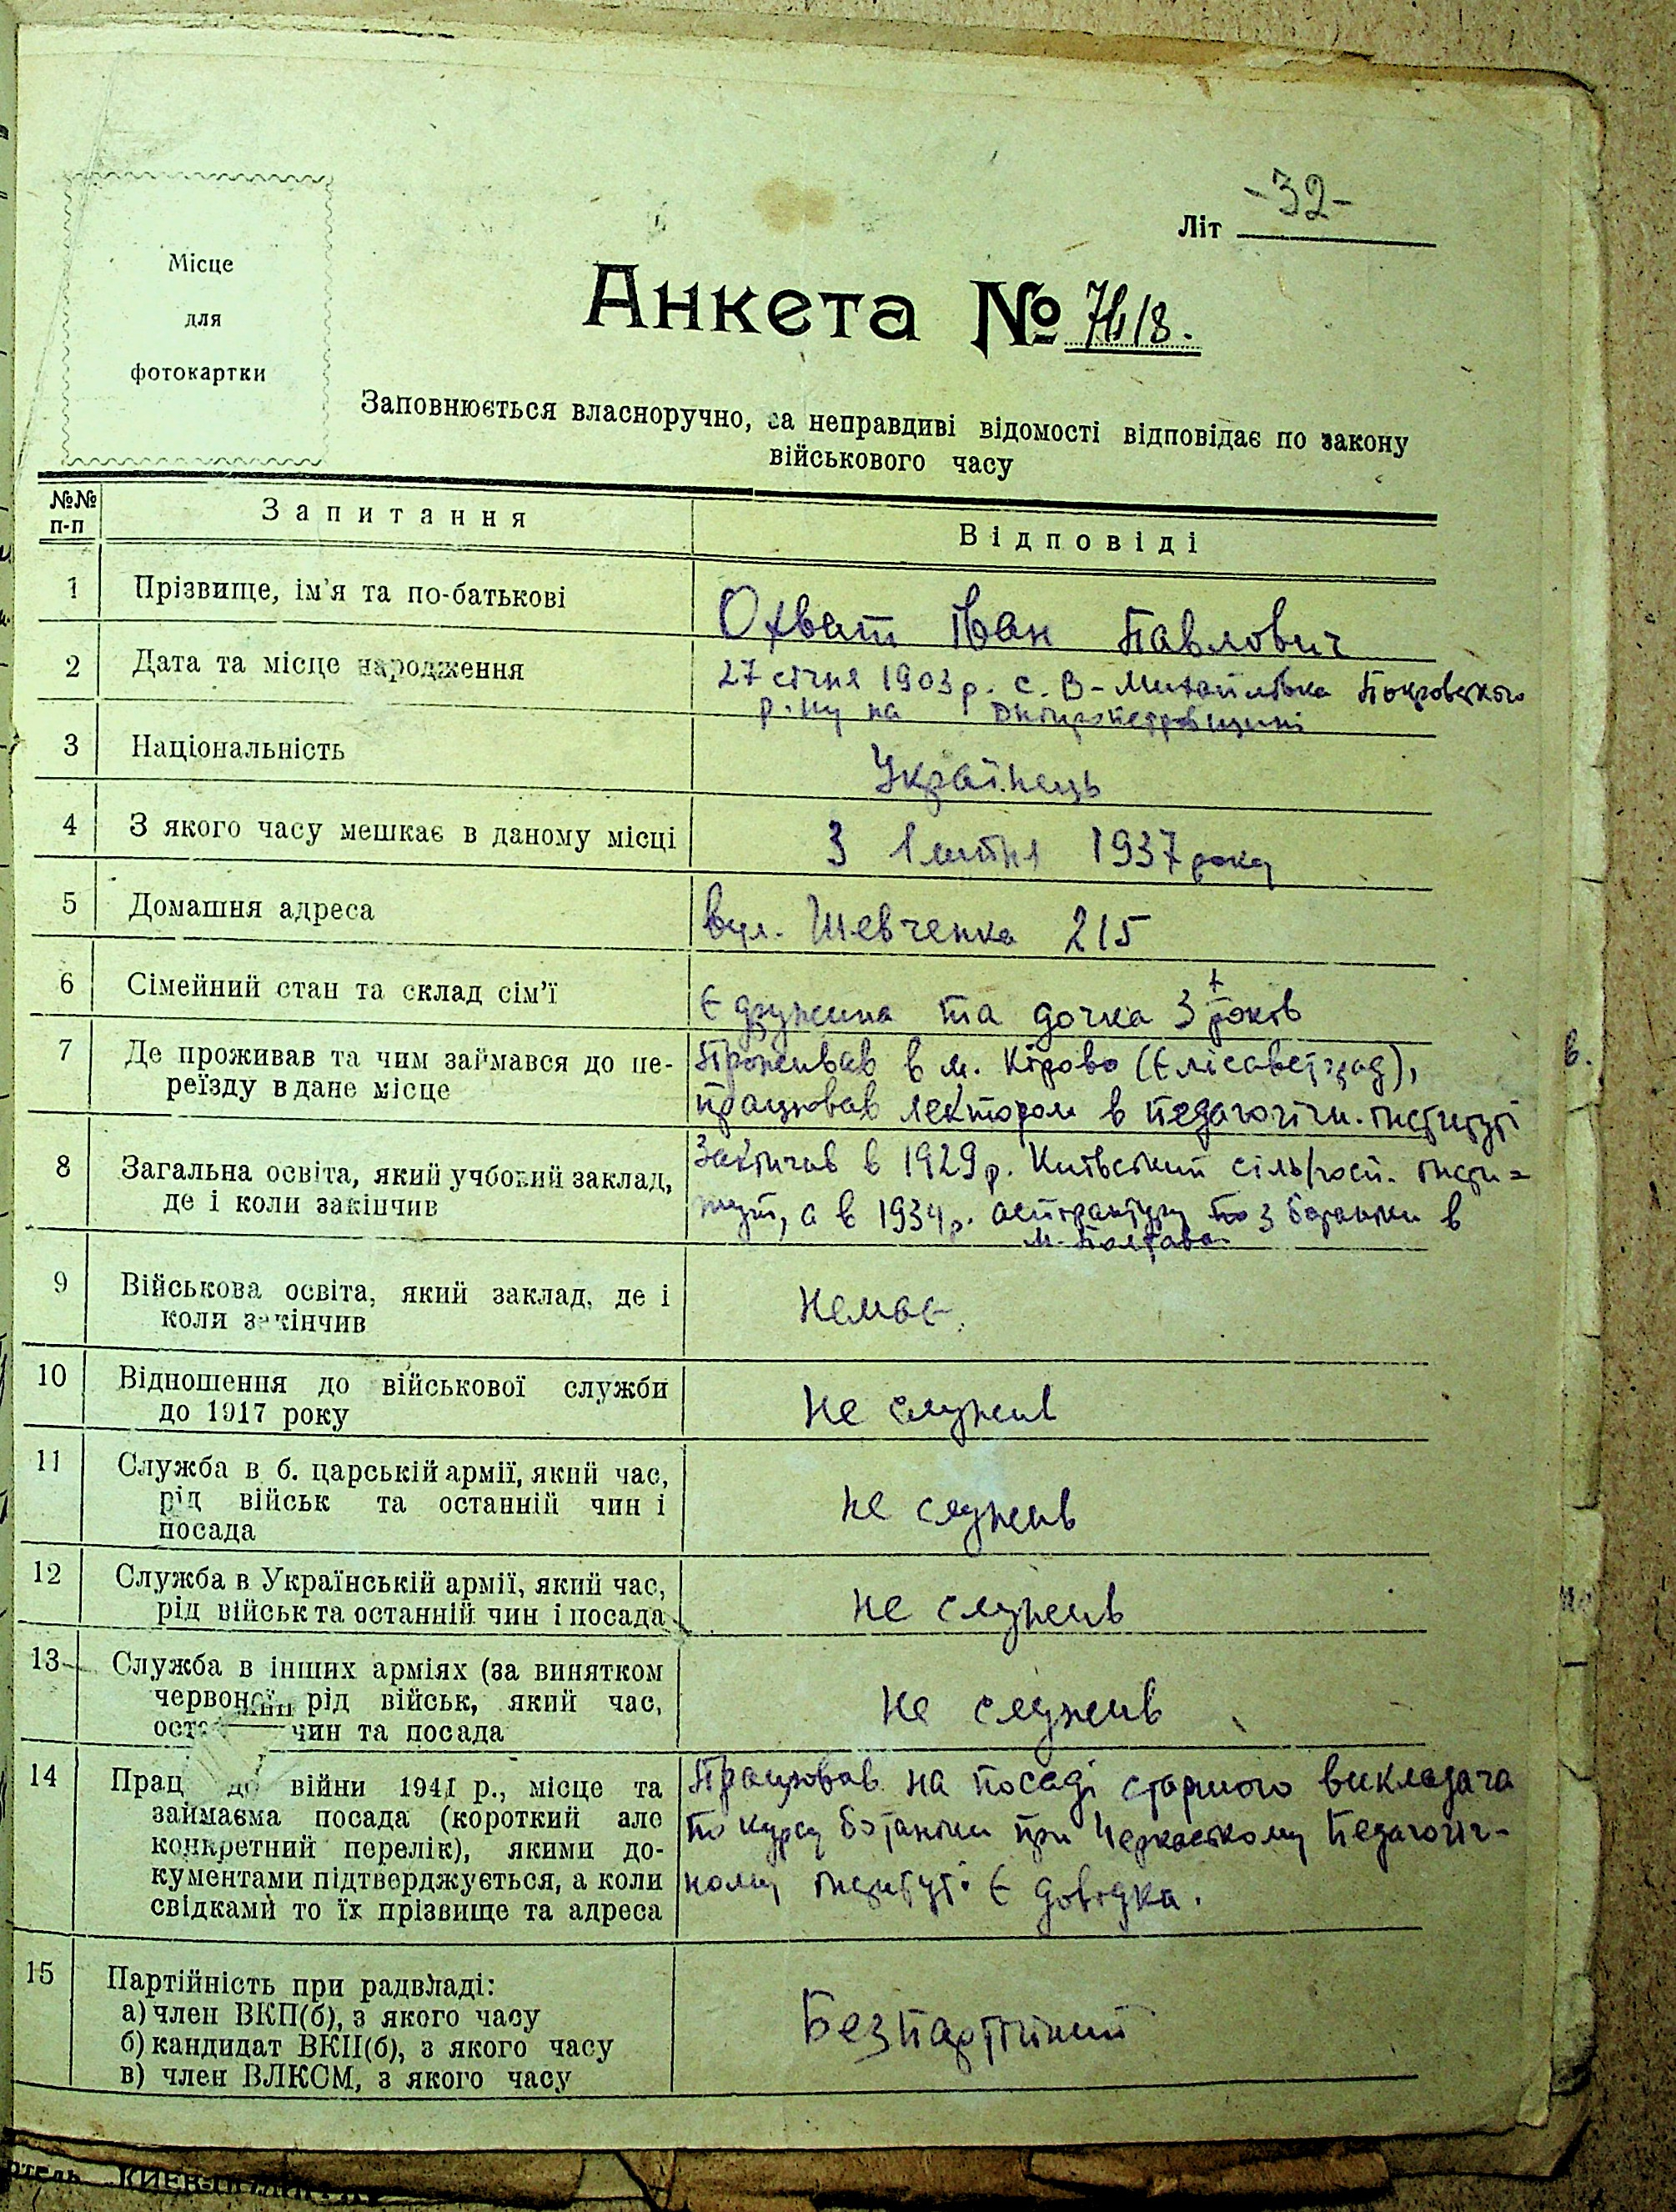 -32-
Літ
Місце
для
фотокартки
Анкета №
Заповнюється власноручно, за неправдиві відомості відповідає по закону
військового часу
№№ п-п Запитання Відповіді
1 Прізвище, ім'я та по-батькові Охват Іван Павлович
2 Дата та місце народження 27 січня 1903 р. с. В-Михайлівка Покровського
р-ну на Дніпропетровщині
3 Національність Українець
4 З якого часу мешкає в даному місці З 1 1937 року
5 Домашня адреса вул. Шевченка 215
6 Сімейний стан та склад сім'ї Є дружина та дочка 3 років
7 Де проживав та чим займався до пе- Проживав в м. Кірово (Єлісаветград),
реїзду в дане місце працював лектором в педагогічн. інституті
8 Загальна освіта, який учбовий заклад, Закінчив в 1929 р. Київський сільгосп. інсти=
де і коли закінчив тут, а в 1934 р. аспірантуру з ботаніки в
м. Полтава
9 Військова освіта, який заклад, де і
коли закінчив немає.
10 Відношення до військової служби
до 1917 року не служив
11 Служба в б. царській армії, який час,
рід військ та останній чин і не служив
посада
12 Служба в Українській армії, який час,
рід військ та останній чин і посада не служив
13 Служба в інших арміях (за винятком
червоної рід військ, який час, не служив
чин та посада
14 Прац до війни 1941 р., місце та Працював на посаді старшого викладача
займаєма посада (короткий але по курсу ботаніки при Черкаському Педагогіч-
конкретний перелік), якими до-
кументами підтверджується, а коли ному інституті Є довідка.
свідками то їх прізвище та адреса
15 Партійність при радвладі:
а) член ВКП(б), з якого часу
б) кандидат ВКП(б), з якого часу Безпартійний
в) член ВЛКСМ, з якого часу